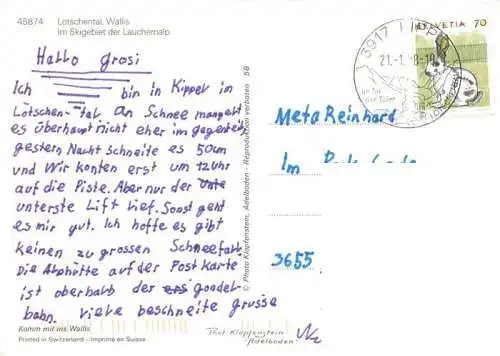 48874 Lötschental, Wallis
Im Skigebiet der Lauchernalp
Hallo Grosi
Ich bin in Kippel im
Lötschen-tal. An Schnee mangelt
es überhaubt nicht eher im gegenteil
gestern Nacht Schneite es 50cm
und Wir konten erst um 12 Uhr
auf die Piste. Aber nur der
unterste Lift lief. Sonst geht
es mir gut. Ich hoffe es gibt
keinen zu grossen Schneefall.
Die Alphütte auf der Postkarte
ist oberhalb der gondel-
bahn. Viele beschneite grüsse
Komm mit ins Wallis
Printed in Switzerland - Imprimé en Suisse
© Photo Klopfenstein, Adelboden - Reproduktion verboten 58
3917
21.-1.
HELVETIA 70
Meta Reinhard
Im
3655
Phot Klopfenstein
Adelboden